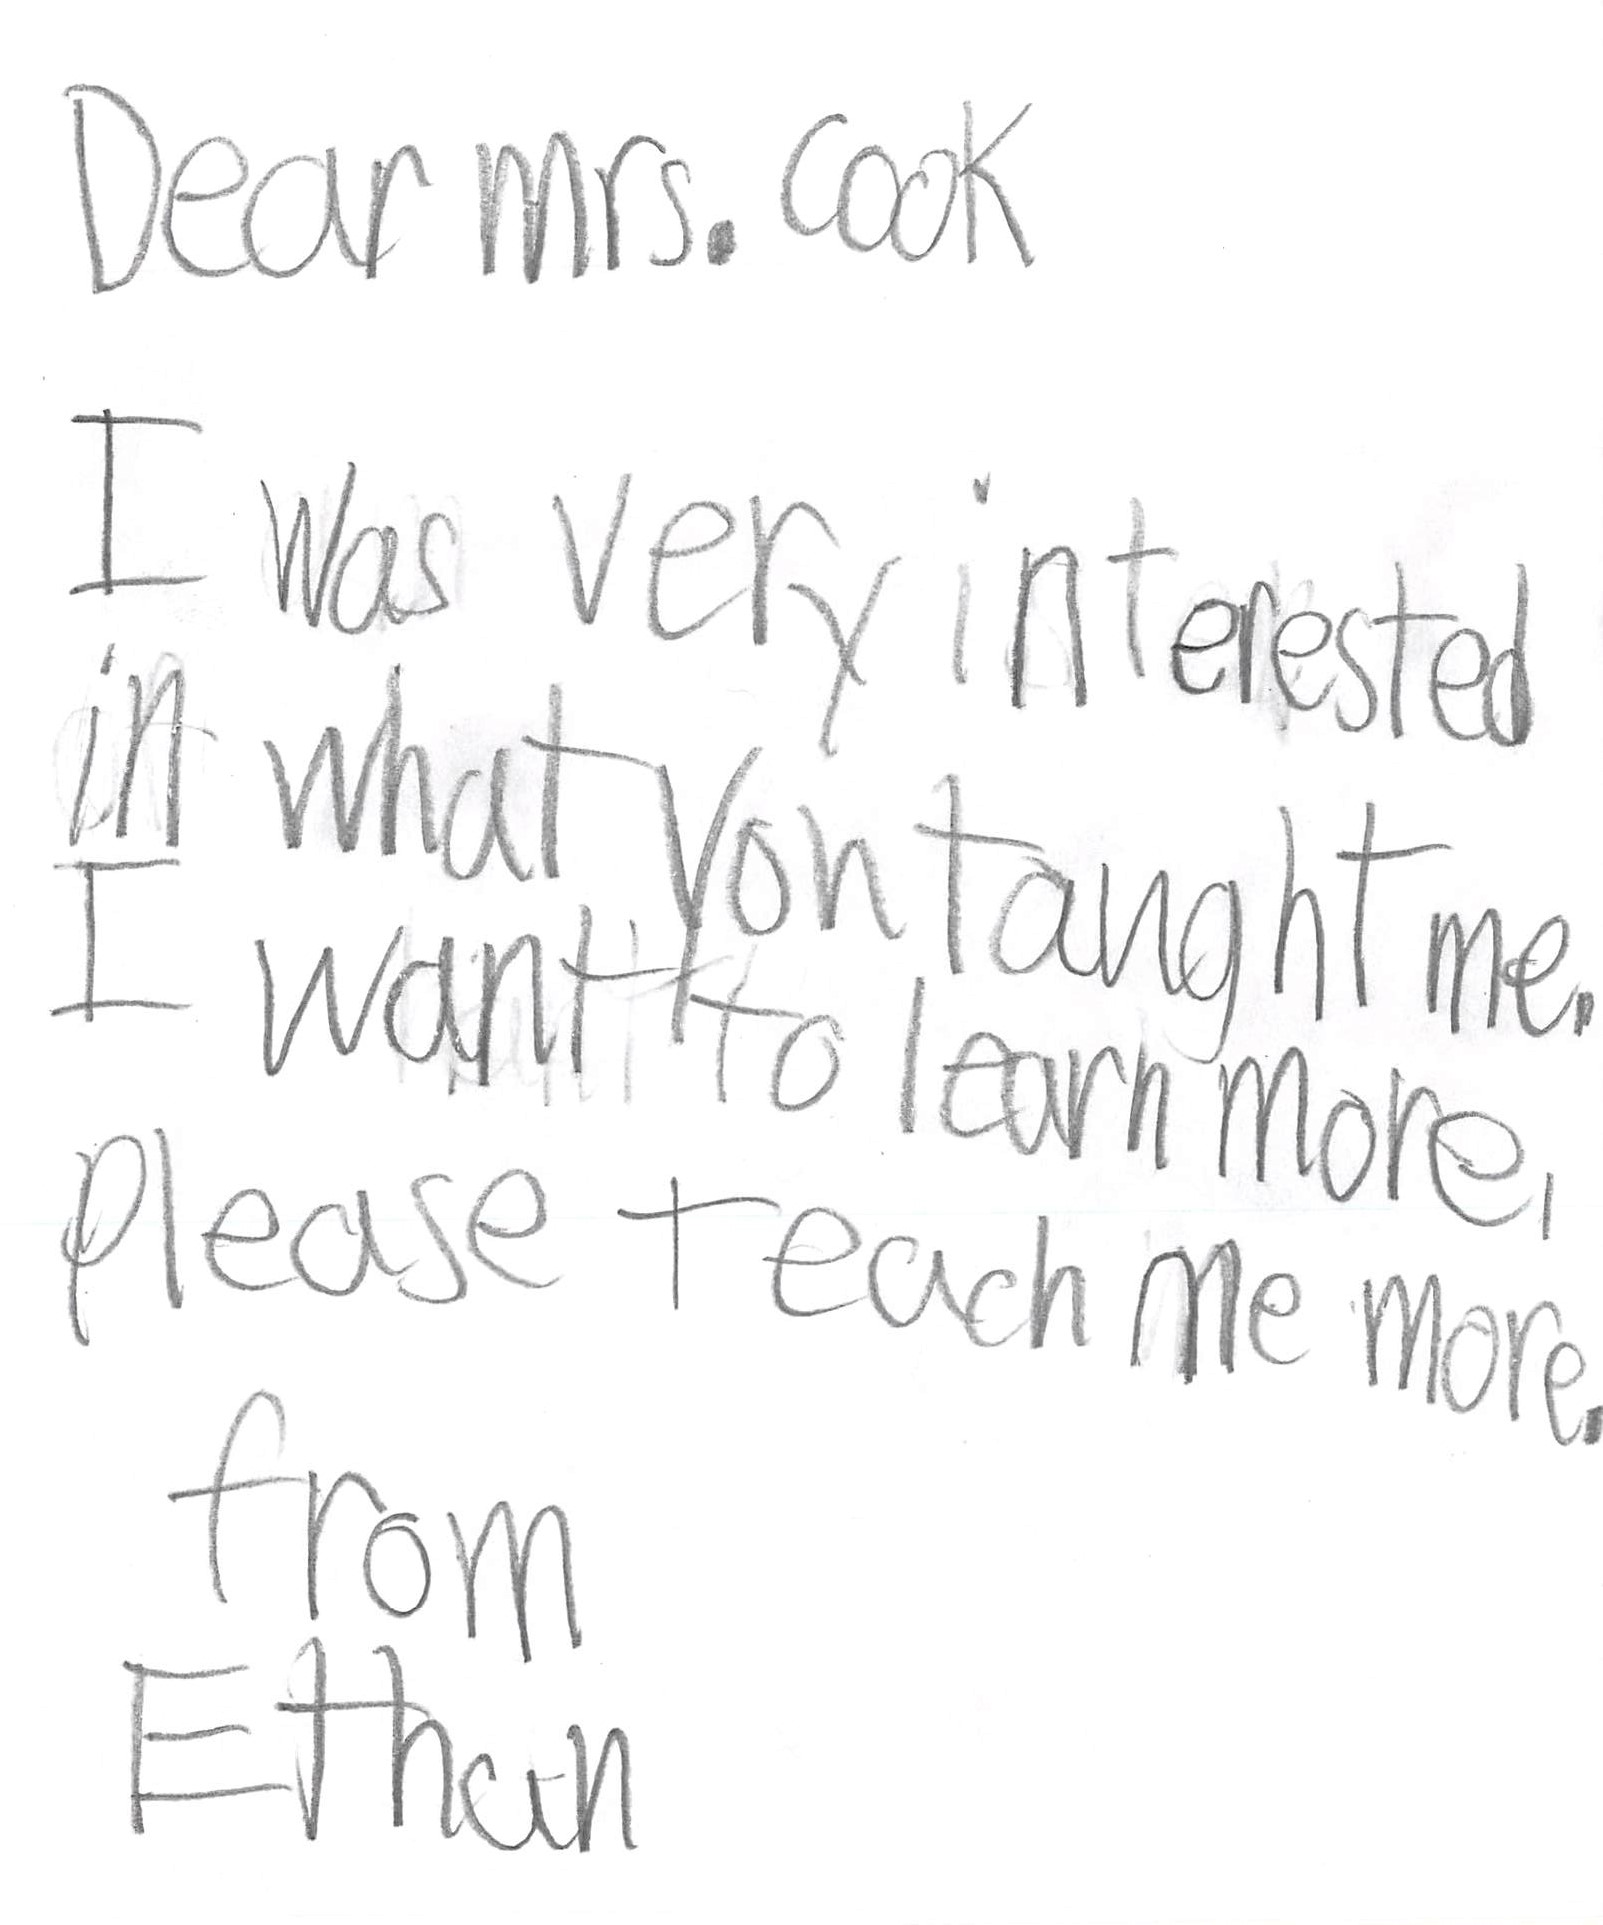 Dear mrs. Cook
I was very interested
in what you taught me.
I want to learn more,
please teach me more.
from
Ethan